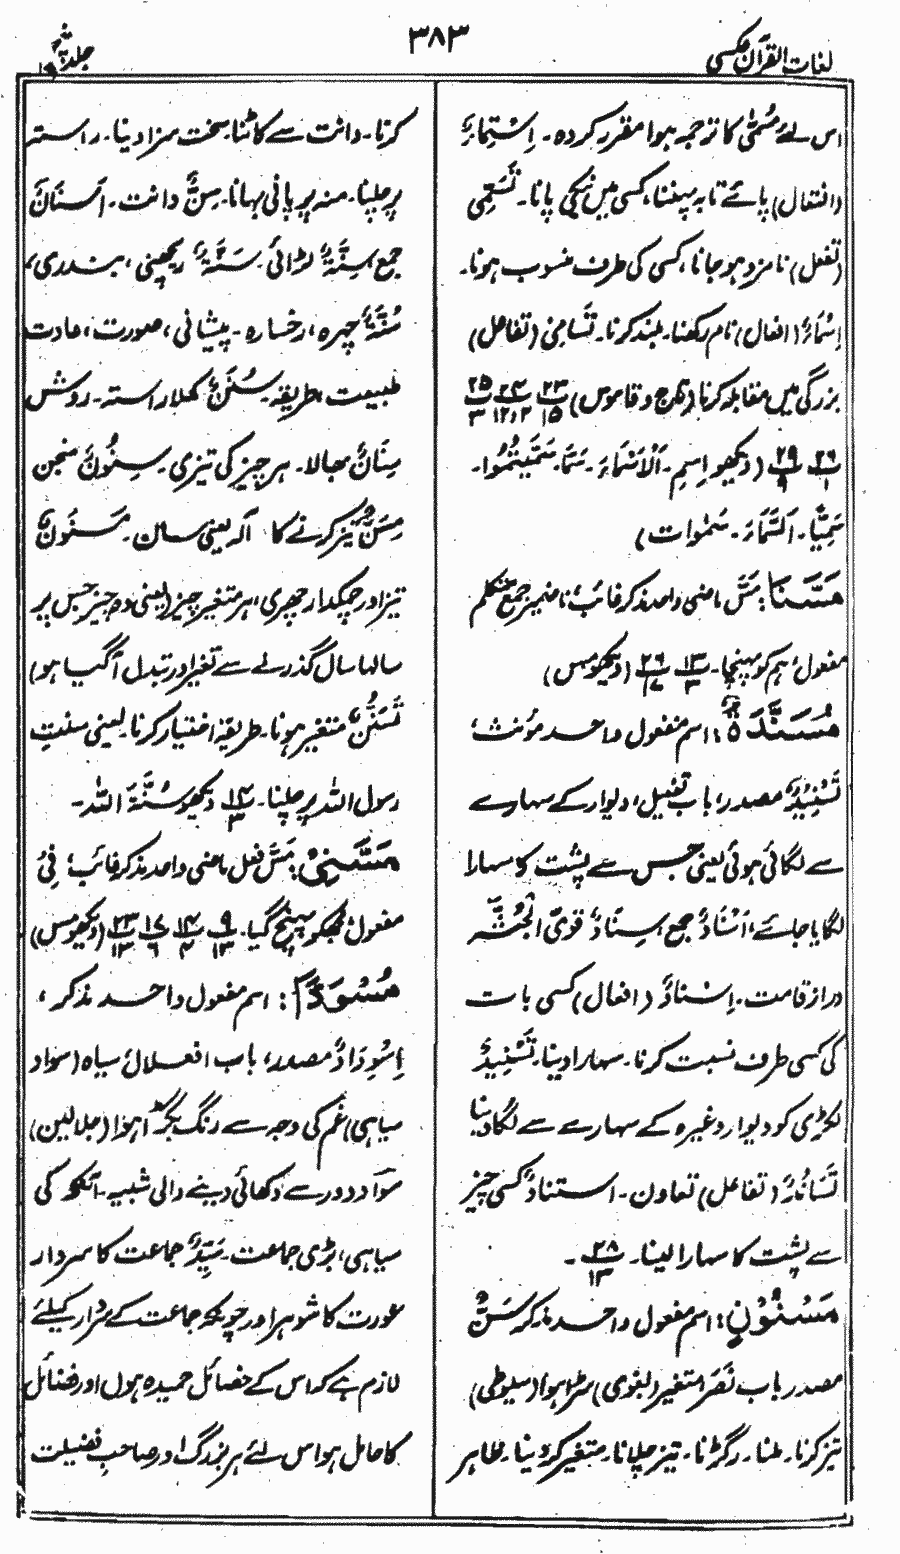 لغات القرآن عکسی
۳۸۳
جلد
اس لئے مُسَمًّی کا ترجمہ ہوا مقرر کردہ۔ اِسْتِمَاءٌ
(افتعال) پائے تابہ پہننا، کسی میں نیکی پانا۔ تَسَمِّی
(تفعل) نامزد ہو جانا، کسی کی طرف منسوب ہونا۔
اِسْمَاءٌ (افعال) نام رکھنا۔ بلند کرنا۔ تَسَامِیْ (تفاعل)
بزرگی میں مقابلہ کرنا (تاج و قاموس) ۲۳/۱۵ ۲۴/۱۲،۲ ۲۵/۳
۲۶/۱ ۲۹/۹ (دیکھو اِسْمِ۔ اَلْاَسْمَاءَ۔ سَمَّا۔ سَمَّیْتُمُوا۔
سَمِیًّا۔ اَلسَّمَاءَ۔ سَمٰوات)
مَسَّنَا: مَسَّ ماضی واحد مذکر غائب، نا ضمیر جمع متکلم
مفعول، ہم کو پہنچا۔ ۱۳/۳ ۲۶/۱۷ (دیکھو مس)
مُسَنَّدَةٌ: اسم مفعول واحد مؤنث،
تَسْنِیْدٌ مصدر، باب تفعیل، دیوار کے سہارے
سے لگائی ہوئی یعنی جس سے پشت کو سہارا
لگایا جائے، اَسْنَادٌ جمع، سِنَادٌ قوِیُّ الجُثَّہ
دراز قامت۔ اِسْنَادٌ (افعال) کسی بات
کی کسی طرف نسبت کرنا۔ سہارا دینا۔ تَسْنِیْدٌ
لکڑی کو دیوار وغیرہ کے سہارے سے لگا دینا
تَسَانُدٌ (تفاعل) تعاون۔ استنادٌ کسی چیز
سے پشت کا سہارا لینا۔ ۲۸/۱۳ ۔
مَسْنُوْنٍ: اسم مفعول واحد مذکر سَنٌّ
مصدر باب نَصَرَ متغیر (بغوی) سڑا ہوا (سیوطی)
تیز کرنا۔ ملنا۔ رگڑنا۔ تیز چلانا۔ متغیر کر دینا۔ ظاہر
کرنا۔ دانت سے کاٹنا۔ سخت سزا دینا۔ راستہ
پر چلنا۔ منہ پر پانی بہانا۔ سِنٌّ دانت۔ اَسْنَانٌ
جمع، سِنَۃٌ لڑائی۔ سَنَۃٌ ریچھنی، بندری،
سُنَّۃٌ چہرہ، رخسارہ۔ پیشانی، صورت، عادت
طبیعت، طریقہ۔ سُنَنٌ کھلا راستہ۔ روش
سِنَانٌ بھالا۔ ہر چیز کی تیزی۔ سِنُونٌ منجن
مِسَنٌّ تیز کرنے کا آلہ یعنی سان۔ مَسْنُونٌ
تیز اور چمکدار چھری، ہر متغیر چیز (یعنی وہ چیز جس پر
سالہا سال گذرنے سے تغیر اور تبدل آ گیا ہو)
تَسَنُّنٌ متغیر ہونا۔ طریقہ اختیار کرنا۔ یعنی سنتِ
رسول اللہ پر چلنا۔ ۱۴/۳ دیکھو سُنَّۃَ اللہ۔
مَسَّنِیَ: مَسَّ فعل ماضی واحد مذکر غائب، نِیْ
مفعول، مجھ کو پہنچ گیا۔ ۹/۱۳ ۱۴/۴ ۱۷/۶ ۲۳/۱۲ (دیکھو مس)
مُسْوَدًّا: اسم مفعول واحد مذکر،
اِسْوِدَادٌ مصدر، باب افعلال سیاہ (سواد
سیاہی) غم کی وجہ سے رنگ بگڑا ہوا (جلالین)
سَوَاد دور سے دکھائی دینے والی شبیہ۔ آنکھ کی
سیاہی، بڑی جماعت۔ سَیِّدٌ جماعت کا سردار
عورت کا شوہر اور چونکہ جماعت کے سردار کیلئے
لازم ہے کہ اس کے خصائل حمیدہ ہوں اور فضائل
کا حامل ہو اس لئے ہر بزرگ اور صاحبِ فضیلت